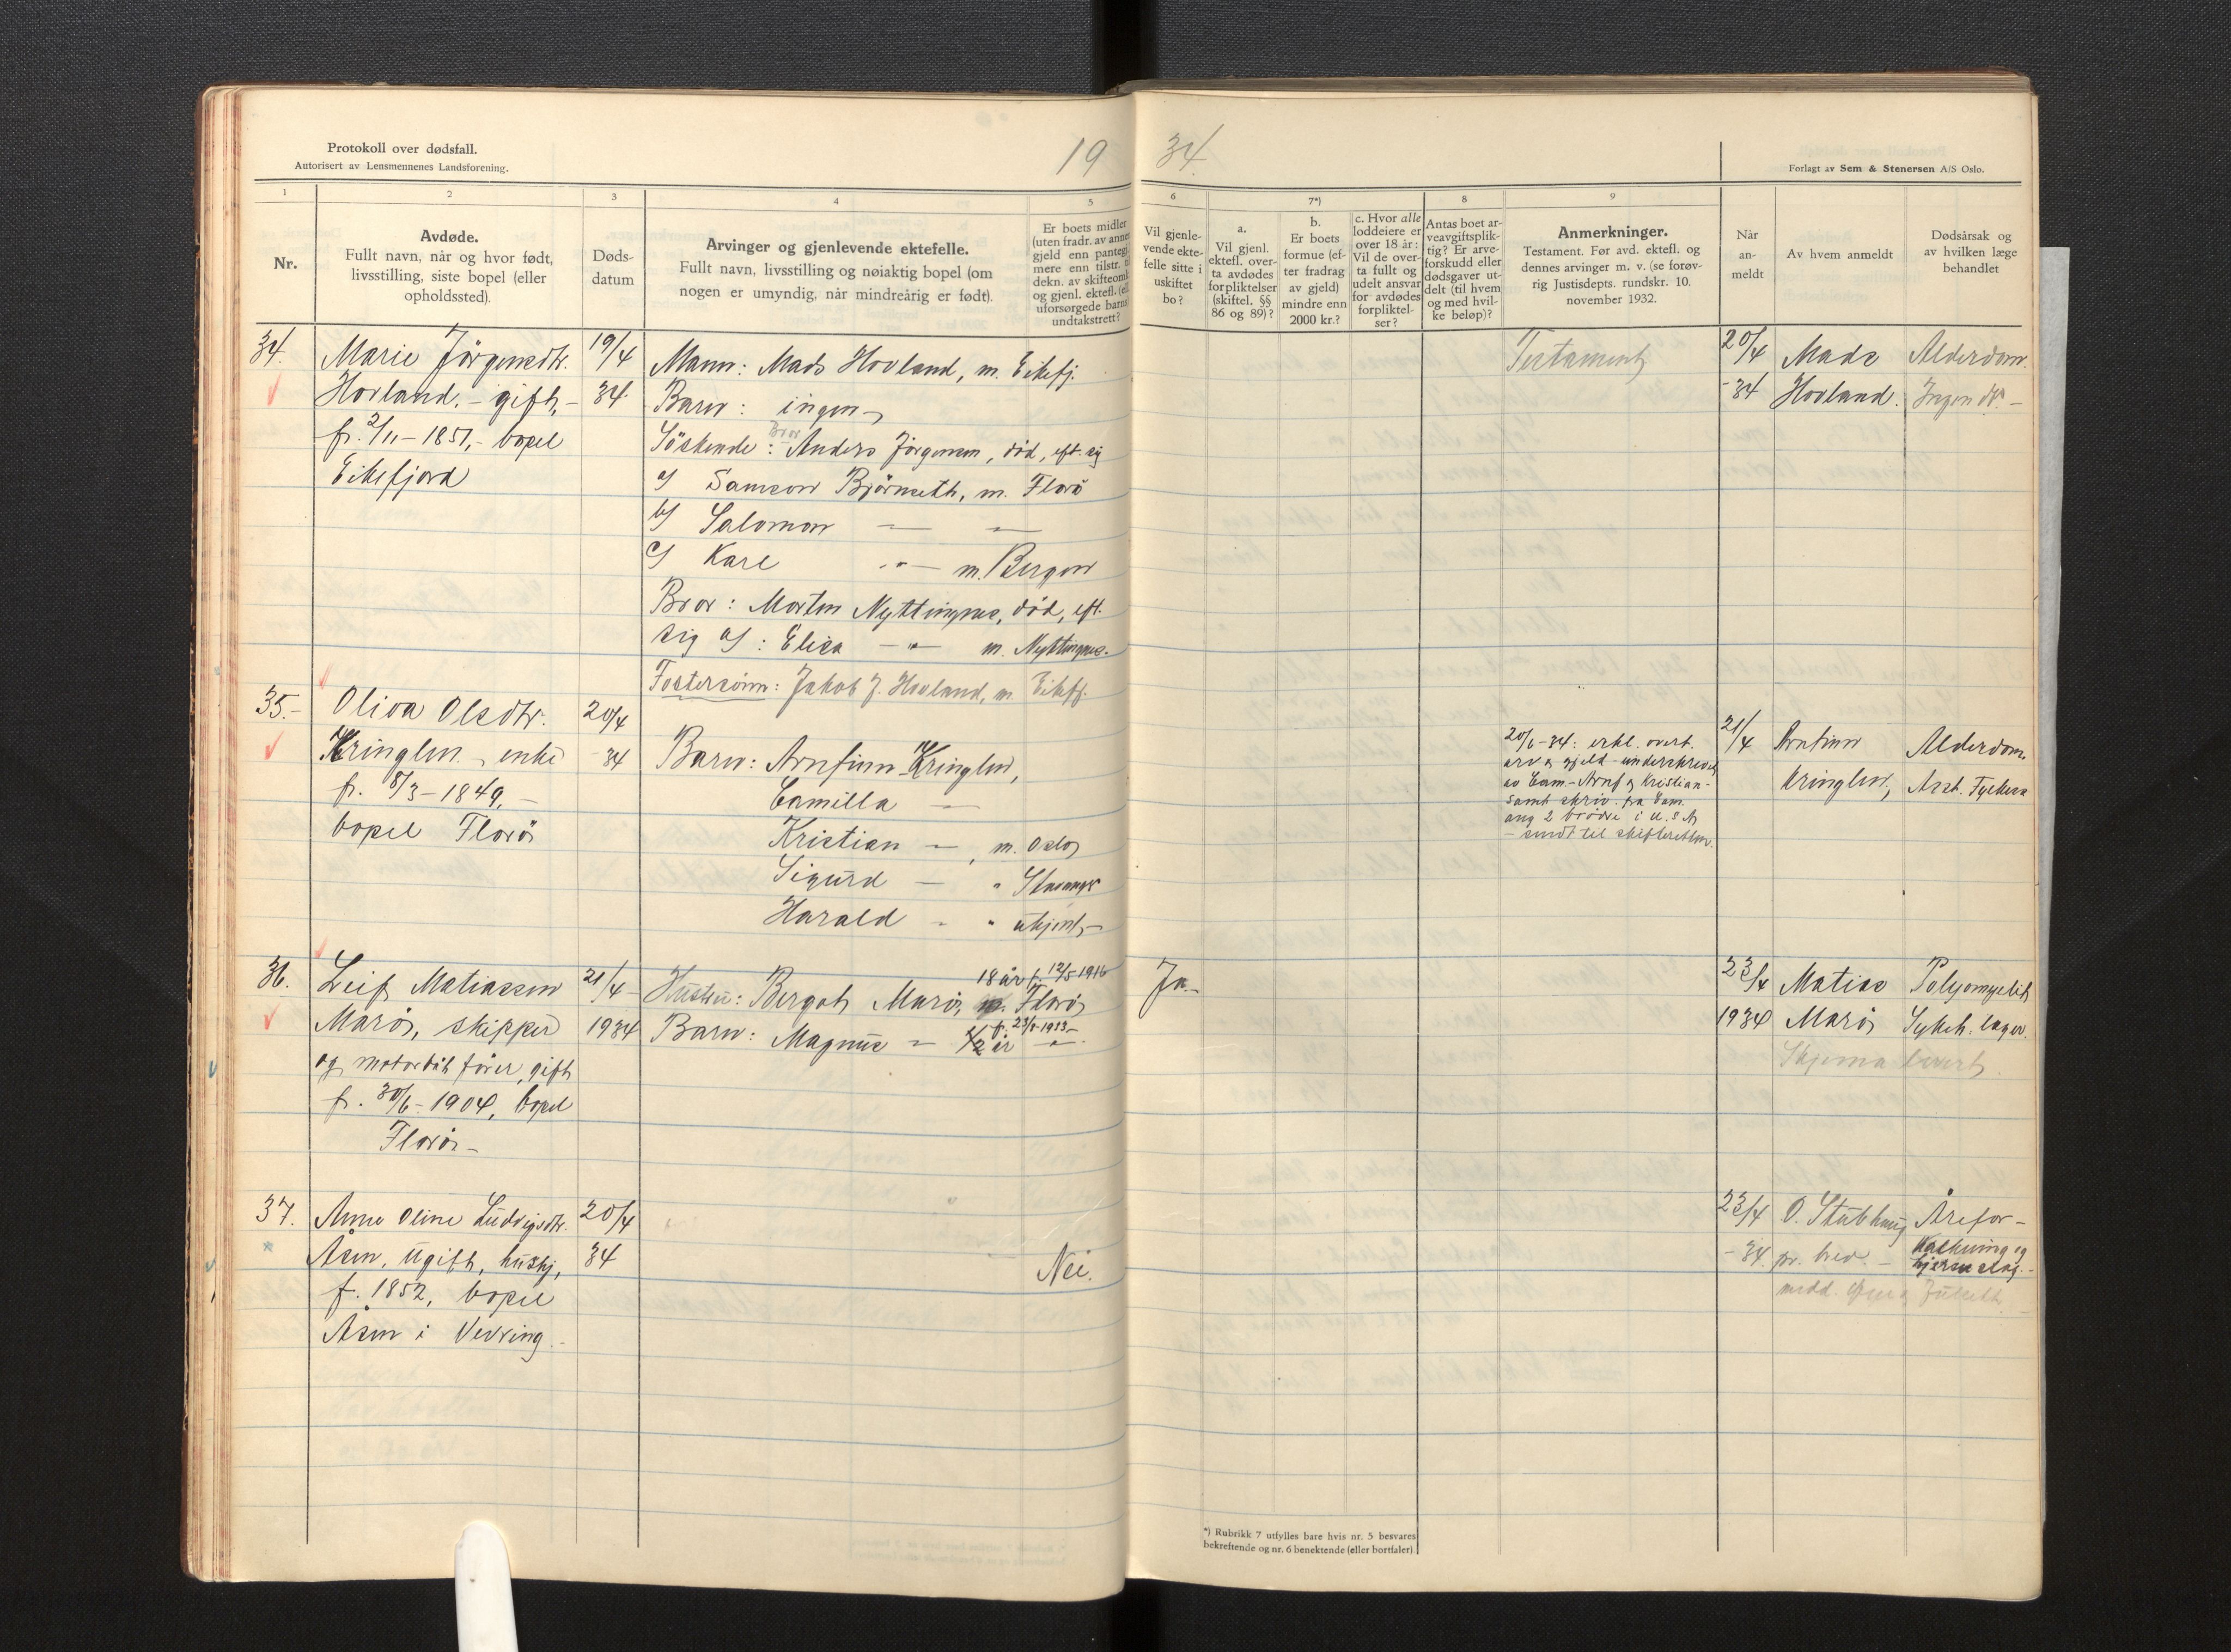 Protokoll over dødsfall.
Autorisert av Lensmennenes Landsforening.
19
34.
Forlagt av Sem & Stenersen A/S Oslo.
1
2
3
4
5
6
7*)
8
9
Nr.
Avdøde.
Fullt navn, når og hvor født,
livsstilling, siste bopel (eller
opholdssted).
Døds-
datum
Arvinger og gjenlevende ektefelle.
Fullt navn, livsstilling og nøiaktig bopel (om
nogen er umyndig, når mindreårig er født).
Er boets midler
(uten fradr. av annen
gjeld enn pantegj.
mere enn tilstr. til
dekn. av skifteomk.
og gjenl. ektefl. (ell.
uforsørgede barns)
undtakstrett?
Vil gjenle-
vende ekte-
felle sitte i
uskiftet
bo?
a.
Vil gjenl.
ektefl. over-
ta avdødes
forpliktelser
(skiftel. §§
86 og 89)?
b.
Er boets
formue (ef-
ter fradrag
av gjeld)
mindre enn
2000 kr.?
c. Hvor alle
loddeiere er
over 18 år:
Vil de over-
ta fullt og
udelt ansvar
for avdødes
forpliktel-
ser?
Antas boet ar-
veavgiftsplik-
tig? Er arve-
forskudd eller
dødsgaver ut-
delt (til hvem
og med hvil-
ke beløp)?
Anmerkninger.
Testament. Før avd. ektefl. og
dennes arvinger m. v. (se forøv-
rig Justisdepts. rundskr. 10.
november 1932.
Når
an-
meldt
Av hvem anmeldt
Dødsårsak og
av hvilken læge
behandlet
34.
Marie Jörgensdtr.
Hovland. - gift, -
f. 2/11 - 1851, - bopel
Eikefjord
19/4
34.
Mann: Mads Hovland, m. Eikefj.
Barn: ingen
Bror
Söskende: Anders Jörgensen, död, eft. sig
a/ Samson Björnseth, m. Florö
b/ Salomon — —
c/ Kare -"- m. Bergen
Bror: Morten Nyttingnes, död, eft.
sig a/: Elisa -"- m. Nyttingnes.
Fostersönn: Jakob J. Hovland, m. Eikefj.
Testament
20/4
-34
Mads
Hovland.
Alderdom.
Ingen dr. -
35.-
Oliva Olsdtr.
Kringlen - enke
f. 8/3 - 1849, -
bopel Florö
20/4
-34
Barn: Arnfinn Kringlen,
Camilla —
Kristian — , m. Oslo
Sigurd — " Stavanger
Harald - " ukjent, -
20/6 - 34: erkl. overt.
arv og gjeld - underskrevet
av Cam. - Arnf og Kristian -
samt skriv. fra Cam.
ang 2 brödre i U.S.A
- sendt til skifteretten.
21/4
Arnfinn
Kringlen,
Alderdom.
Asst.
36.
Leif Matiassen
Marö, skipper
og motorbåt förer, gift
f. 30/6 - 1904, bopel
Florö -
21/4 -
1934
18 år f. 12/5 1916
Hustru: Bergot Marö, m. Florö
f. 23/8 - 1933 -
Barn: Magnus - 1/2 år -"-
Ja. -
23/4
1934
Matias
Marö
Skjema levert
Polyomyelit
Sykeh. læger.
37.
Anne Oline Ludvigsdtr.
Åsen, ugift, hushj,
f. 1852, bopel
Åsen i Vevring.
20/4
34
Nei.
23/4
- 34
O. Stubhaug
pr. brev. -
medd.
Årefor-
kalkning og
hjerneslag. -
*) Rubrikk 7 utfylles bare hvis nr. 5 besvares
bekreftende og nr. 6 benektende (eller bortfaler)